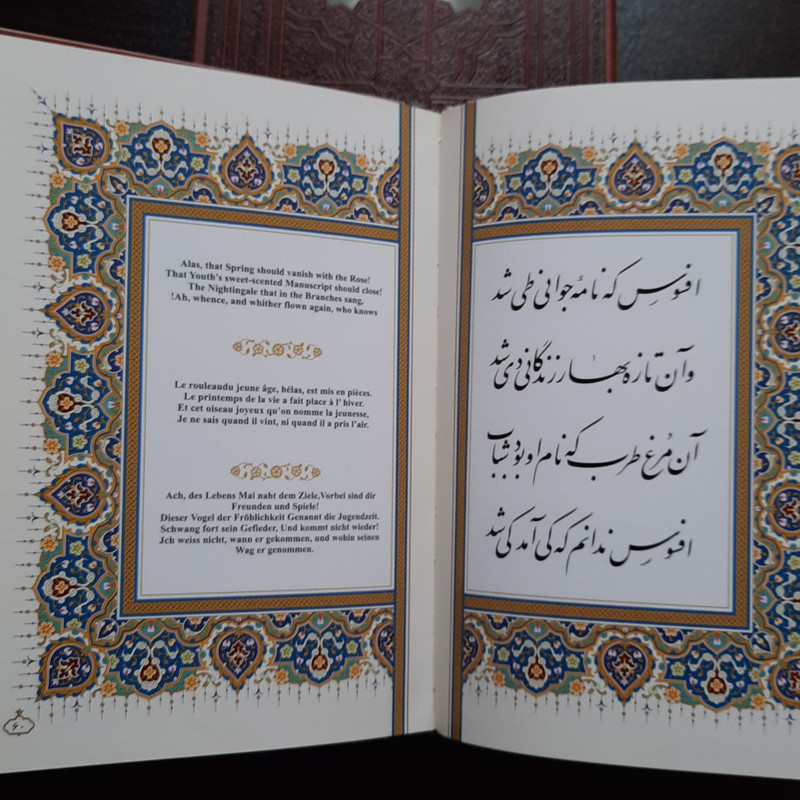 Alas, that Spring should vanish with the Rose!
That Youth's sweet-scented Manuscript should close!
The Nightingale that in the Branches sang,
!Ah, whence, and whither flown again, who knows
Le rouleaudu jeune âge, hélas, est mis en pièces.
Le printemps de la vie a fait place à l' hiver.
Et cet oiseau joyeux qu'on nomme la jeunesse,
Je ne sais quand il vint, ni quand il a pris l'air.
Ach, des Lebens Mai naht dem Ziele,Vorbei sind dir
Freunden und Spiele!
Dieser Vogel der Fröhlichkeit Genannt die Jugendzeit.
Schwang fort sein Gefieder, Und kommt nicht wieder!
Jch weiss nicht, wann er gekommen, und wohin seinen
Wag er genommen.
۶۰
افسوس که نامهٔ جوانی طی شد
وآن تازه بهار زندگانی دی شد
آن مرغ طرب که نام او بود شباب
افسوس ندانم که کی آمد کی شد